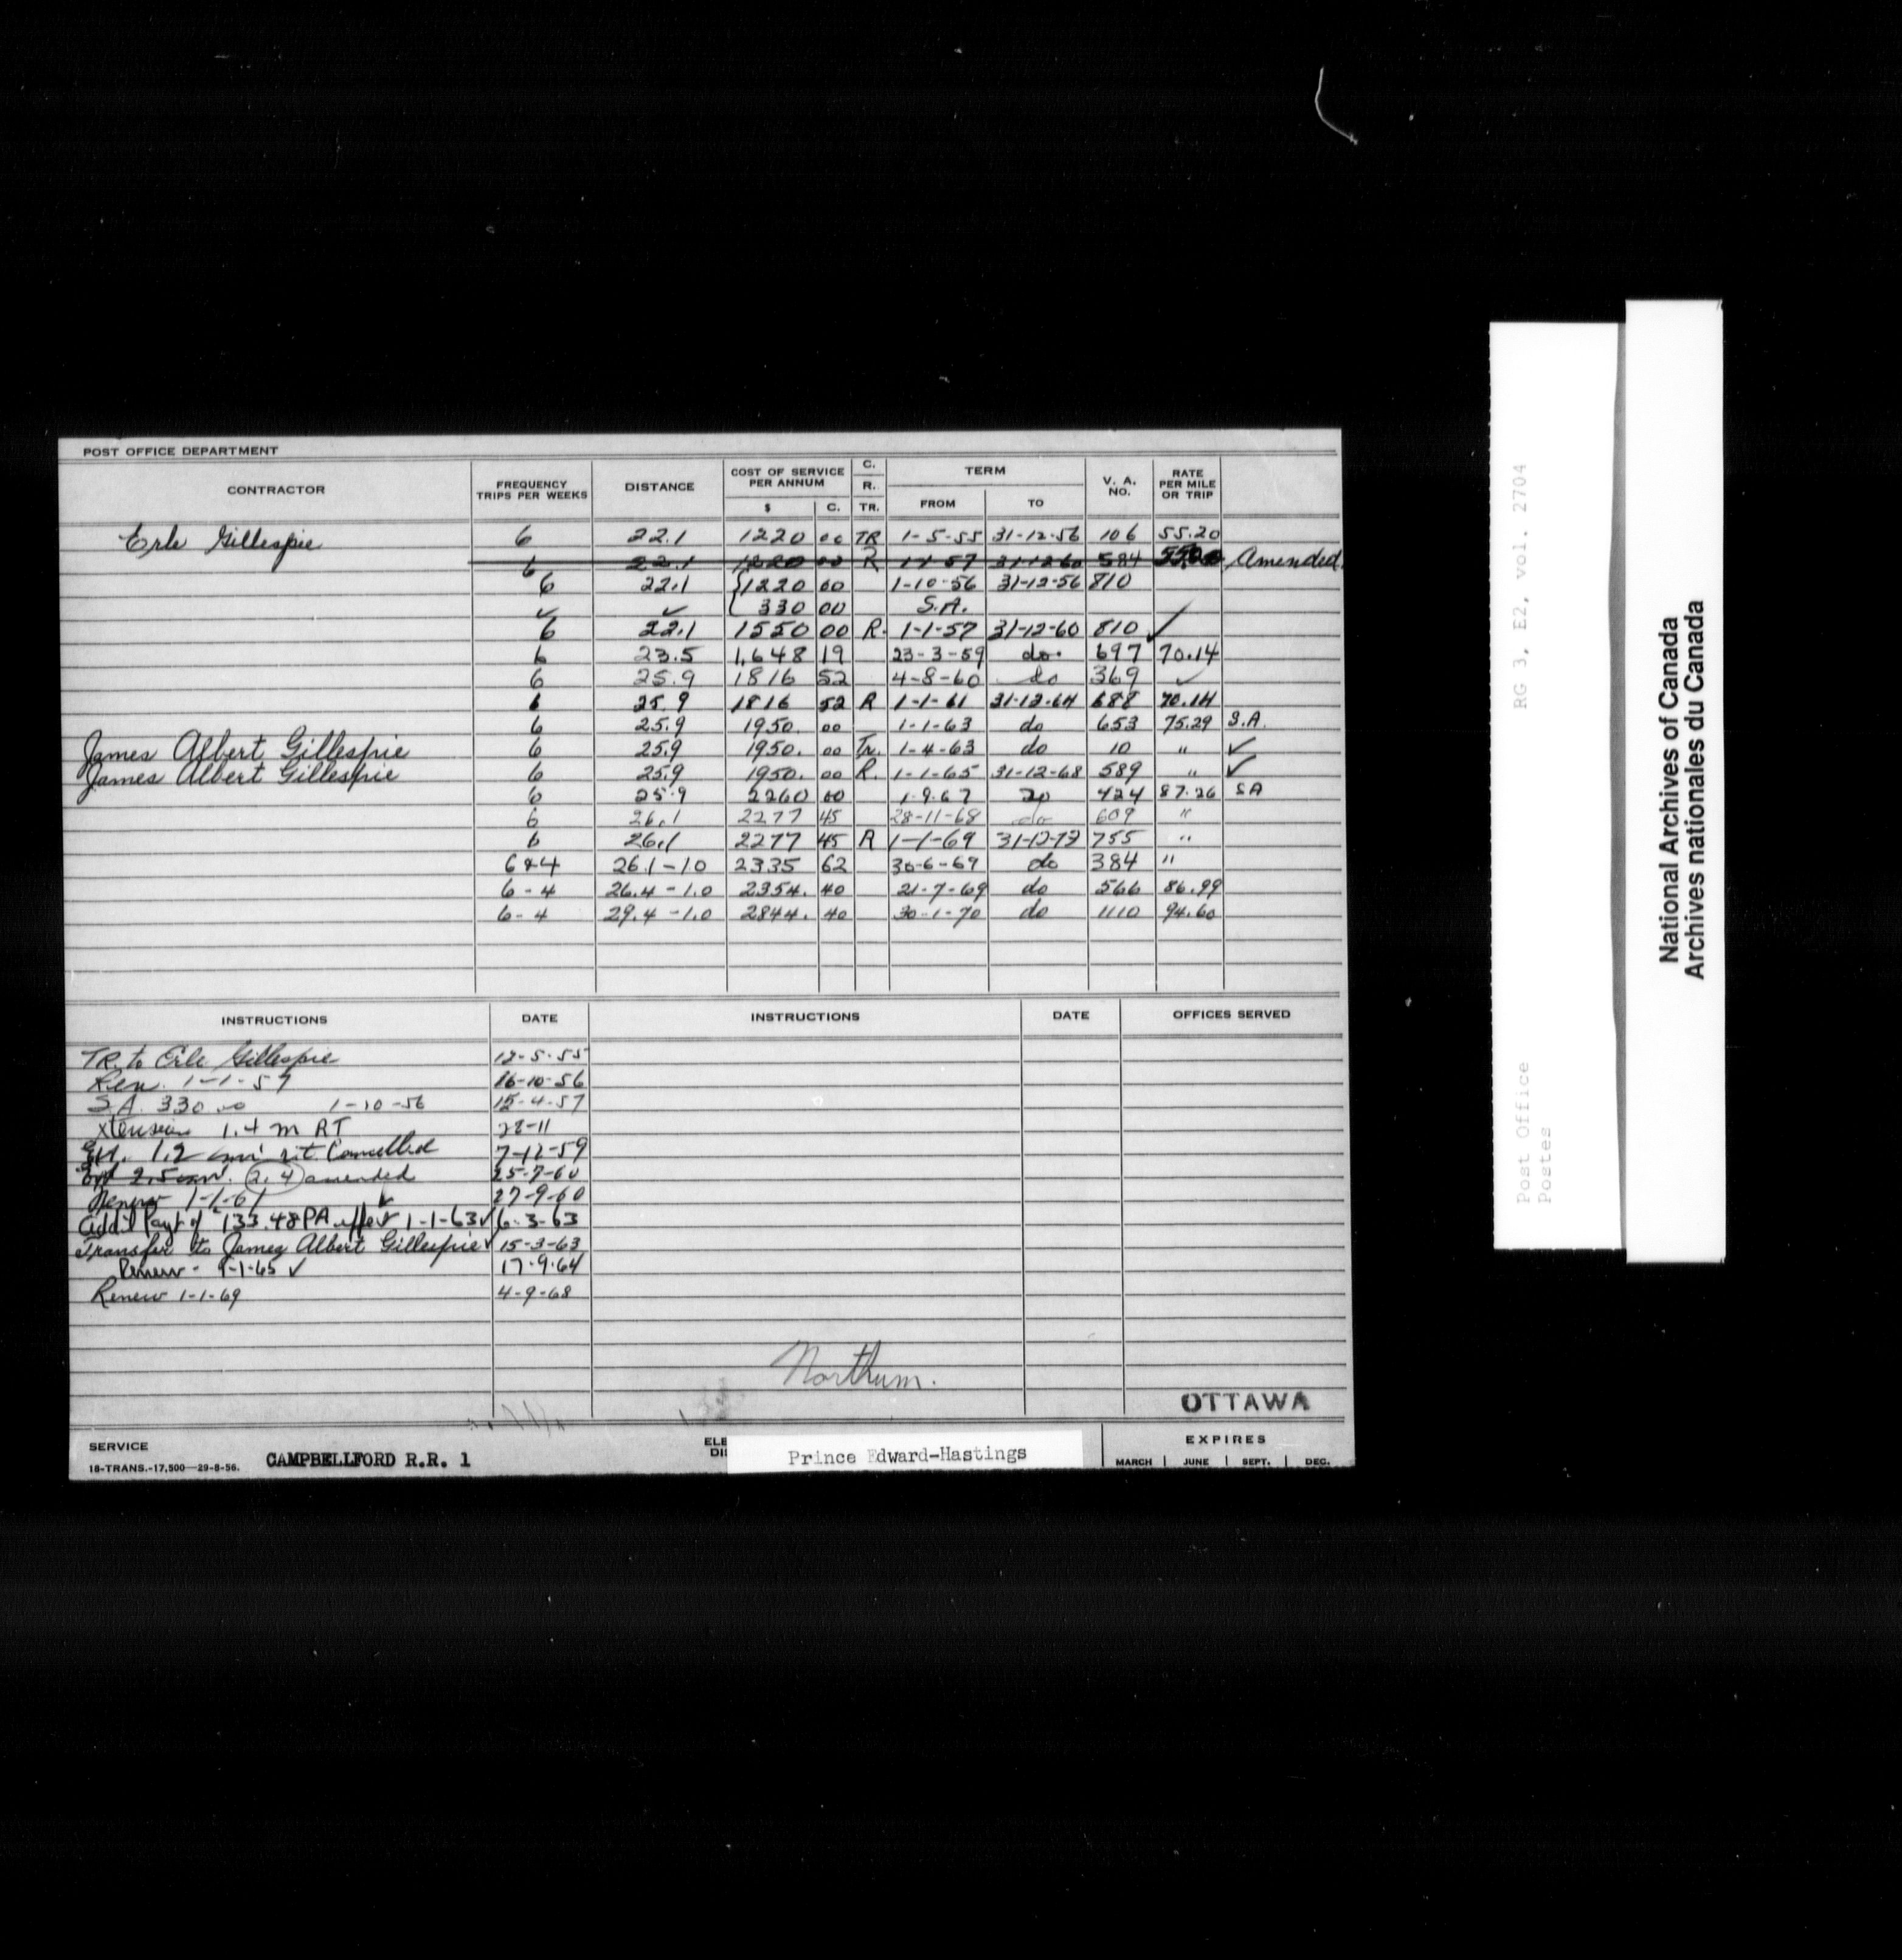 POST OFFICE DEPARTMENT
CONTRACTOR FREQUENCY TRIPS PER WEEKS DISTANCE COST OF SERVICE PER ANNUM $ C. C. R. TR. TERM FROM TO V. A. NO. RATE PER MILE OR TRIP
Erle Gillespie 6 22.1 1220 00 TR 1-5-55 31-12-56 106 55.20
6 22.1 1220 00 R 1-1-57 31-12-60 584 Amended
6 22.1 1220 00 1-10-56 31-12-56 810
✓ ✓ 330 00 S.A.
6 22.1 1550 00 R. 1-1-57 31-12-60 810 ✓
6 23.5 1,648 19 23-3-59 do. 697 70.14
6 25.9 1816 52 4-8-60 do 369 ✓
6 25.9 1816 52 R 1-1-61 31-12-64 688 70.14
6 25.9 1950. 00 1-1-63 do 653 75.29 S.A.
James Albert Gillespie 6 25.9 1950. 00 Tr. 1-4-63 do 10 " ✓
James Albert Gillespie 6 25.9 1950. 00 R. 1-1-65 31-12-68 589 " ✓
6 25.9 2260 00 1.9.67 do 424 87.26 SA
6 26.1 2277 45 28-11-68 do 609 "
6 26.1 2277 45 R 1-1-69 755 "
6&4 26.1-10 2335 62 30-6-69 do 384 "
6-4 26.4-1.0 2354. 40 21-7-69 do 566 86.99
6-4 29.4-1.0 2844. 40 30-1-70 do 1110 94.60
INSTRUCTIONS DATE INSTRUCTIONS DATE OFFICES SERVED
TR. to Erle Gillespie 12-5-55
Ren. 1-1-57 16-10-56
S.A. 330.00 1-10-56 15-4-57
Xtension 1.4 m RT 22-11
Ext. 1.2 r.t. Cancelled 7-12-59
Ext 2.5 2.4 amended 25-7-60
Renew 1-1-61 ✓ 27-9-60
Add'l Payt of 133.48 PA effect 1-1-63 ✓ 6-3-63
Transfer to James Albert Gillespie ✓ 15-3-63
Renew - 1-1-65 ✓ 17-9-64
Renew 1-1-69 4-9-68
Northum.
OTTAWA
SERVICE CAMPBELLFORD R.R. 1
18-TRANS.-17,500—29-8-56.
ELE
DIS
Prince Edward-Hastings
EXPIRES
MARCH JUNE SEPT. DEC.
RG 3, E2, vol. 2704
Post Office
Postes
National Archives of Canada
Archives nationales du Canada